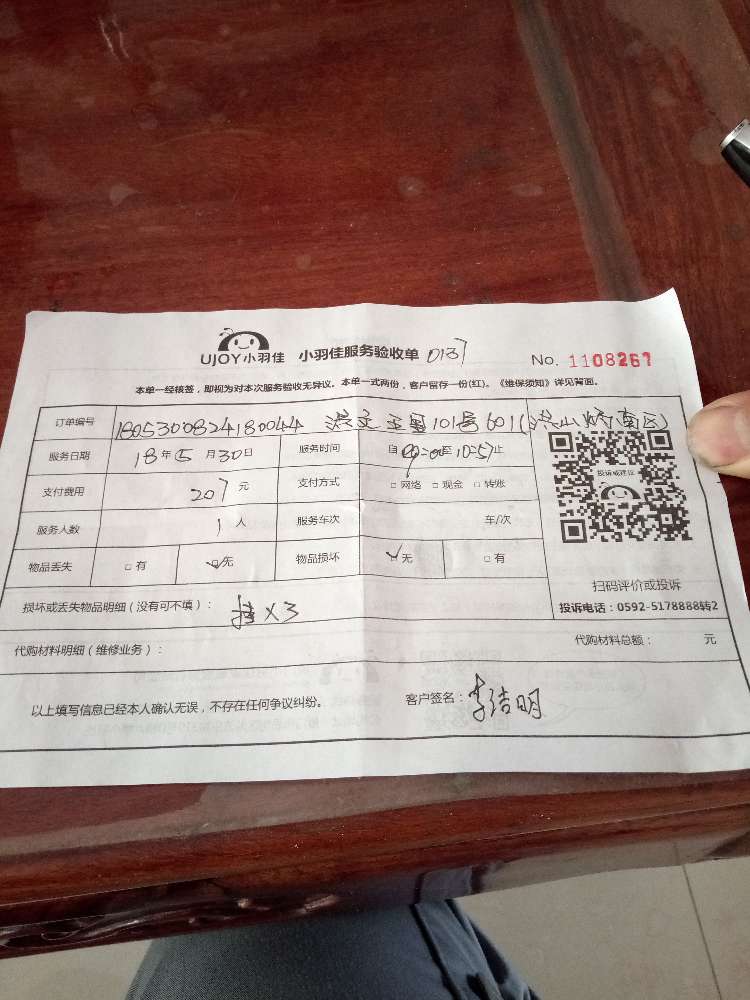 UJOY小羽佳 小羽佳服务验收单 0137 No. 1108267
本单一经核签，即视为对本次服务验收无异议。本单一式两份，客户留存一份(红)。《维保须知》详见背面。
订单编号 1805300824180044 洪文五里101号601(洪山柄南区)
服务日期 18年5月30日 服务时间 自09:00至10:57止
支付费用 207元 支付方式 □网络 □现金 □转账
服务人数 1人 服务车次 车/次
物品丢失 □有 ☑无 物品损坏 ☑无 □有
投诉或建议
扫码评价或投诉
投诉电话：0592-5178888转2
损坏或丢失物品明细（没有可不填）： 挂X3
代购材料明细（维修业务）： 代购材料总额： 元
以上填写信息已经本人确认无误，不存在任何争议纠纷。 客户签名：李洁明